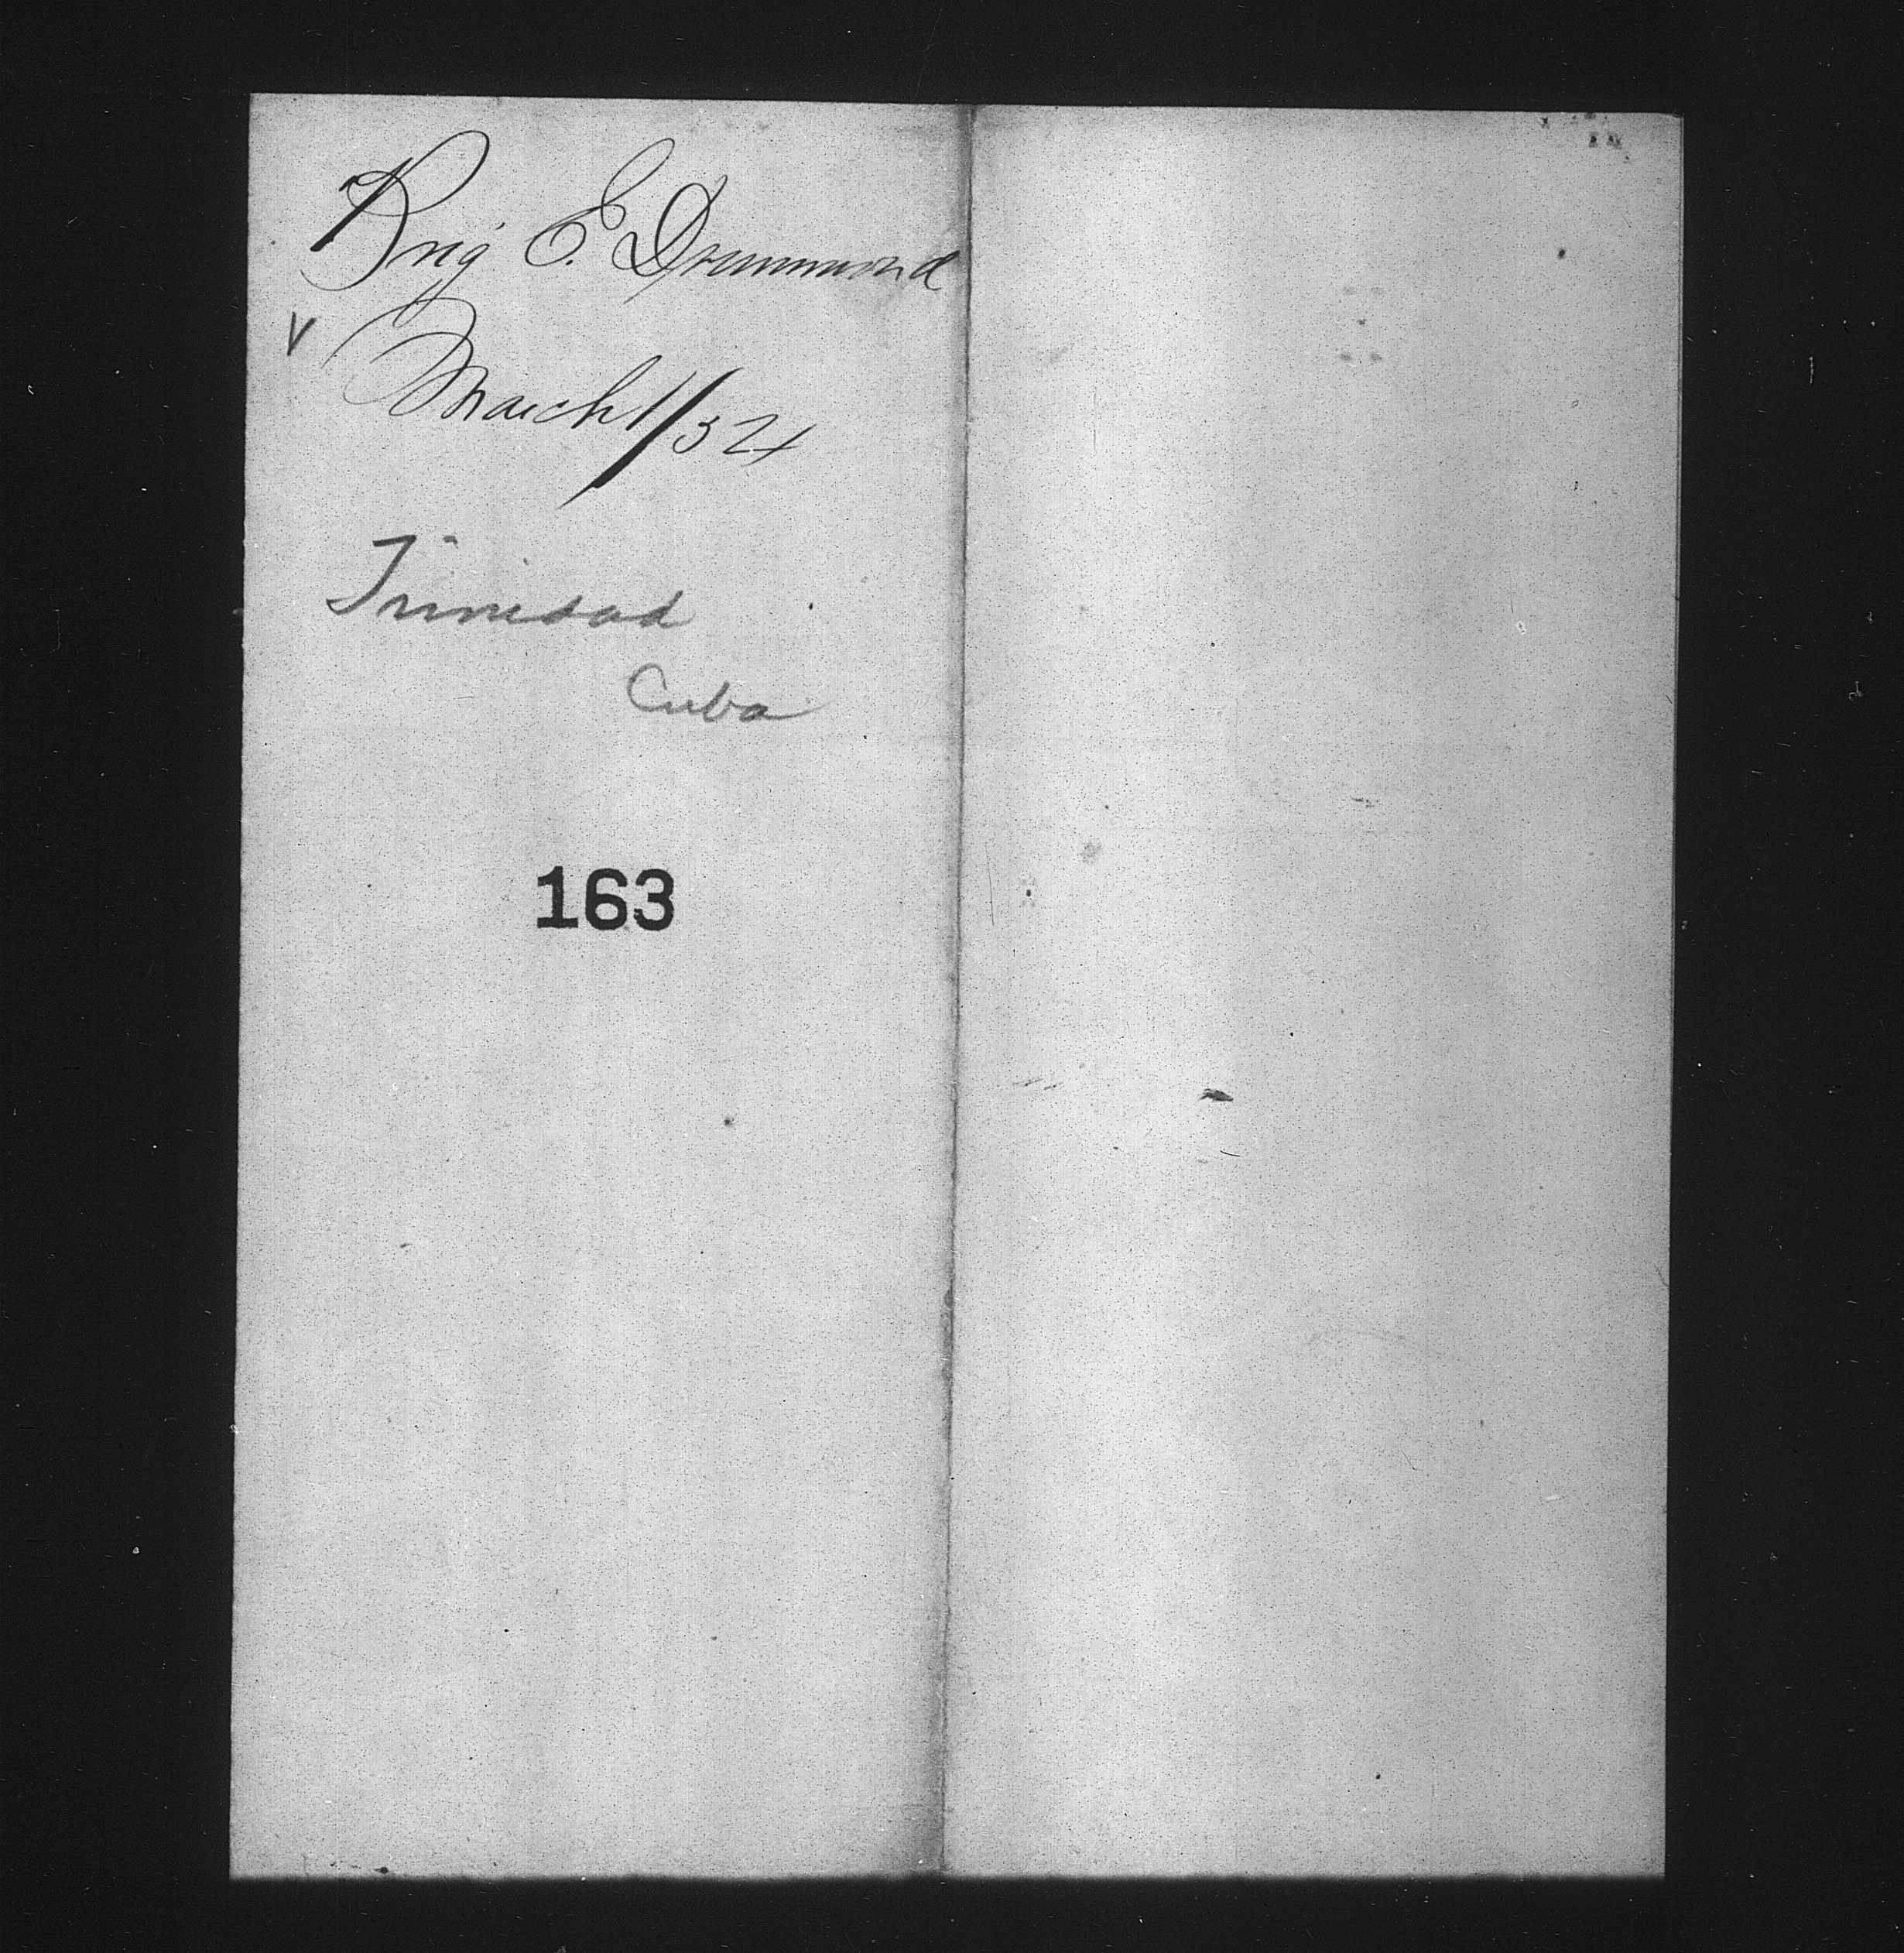 Brig E. Drummond
V
March 1/54
Trinidad
Cuba
163